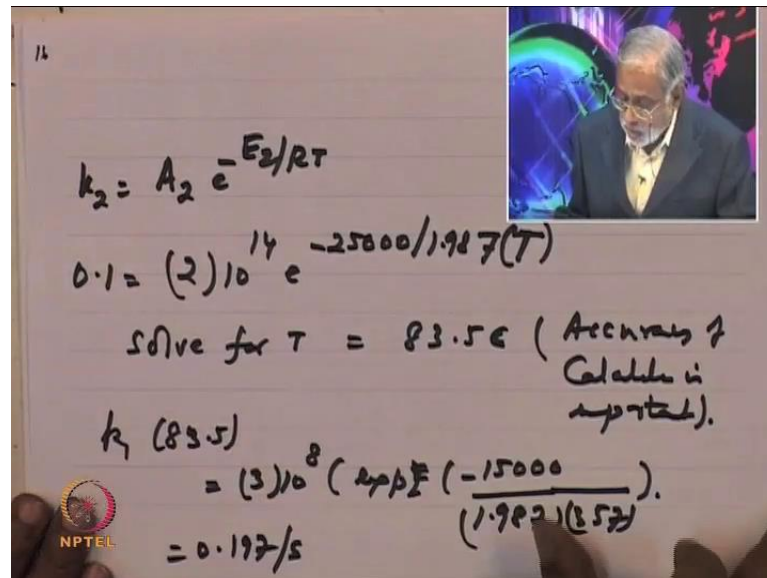 16
k₂ = A₂ e^-E₂/RT
0.1 = (2) 10^14 e^-25000/1.987(T)
Solve for T = 83.5C ( Accuracy of
is
important).
k₁ (83.5)
= (3)10^8 ( (-15000 / (1.987)(357) ).
= 0.197/s
NPTEL